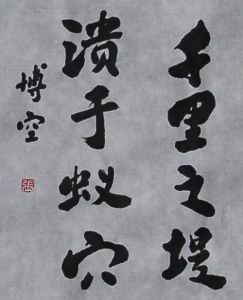 千里之堤
溃于蚁穴
博空
張